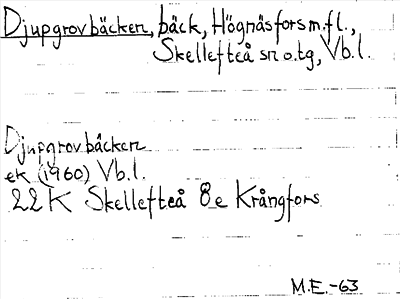 Djupgrovbäcken, bäck, Högnäsfors m.fl.,
Skellefteå sn o.tg, Vb.l.
Djupgrovbäcken
ek (1960) Vb.l.
22 K Skellefteå 8e Krångfors
M.E.-63